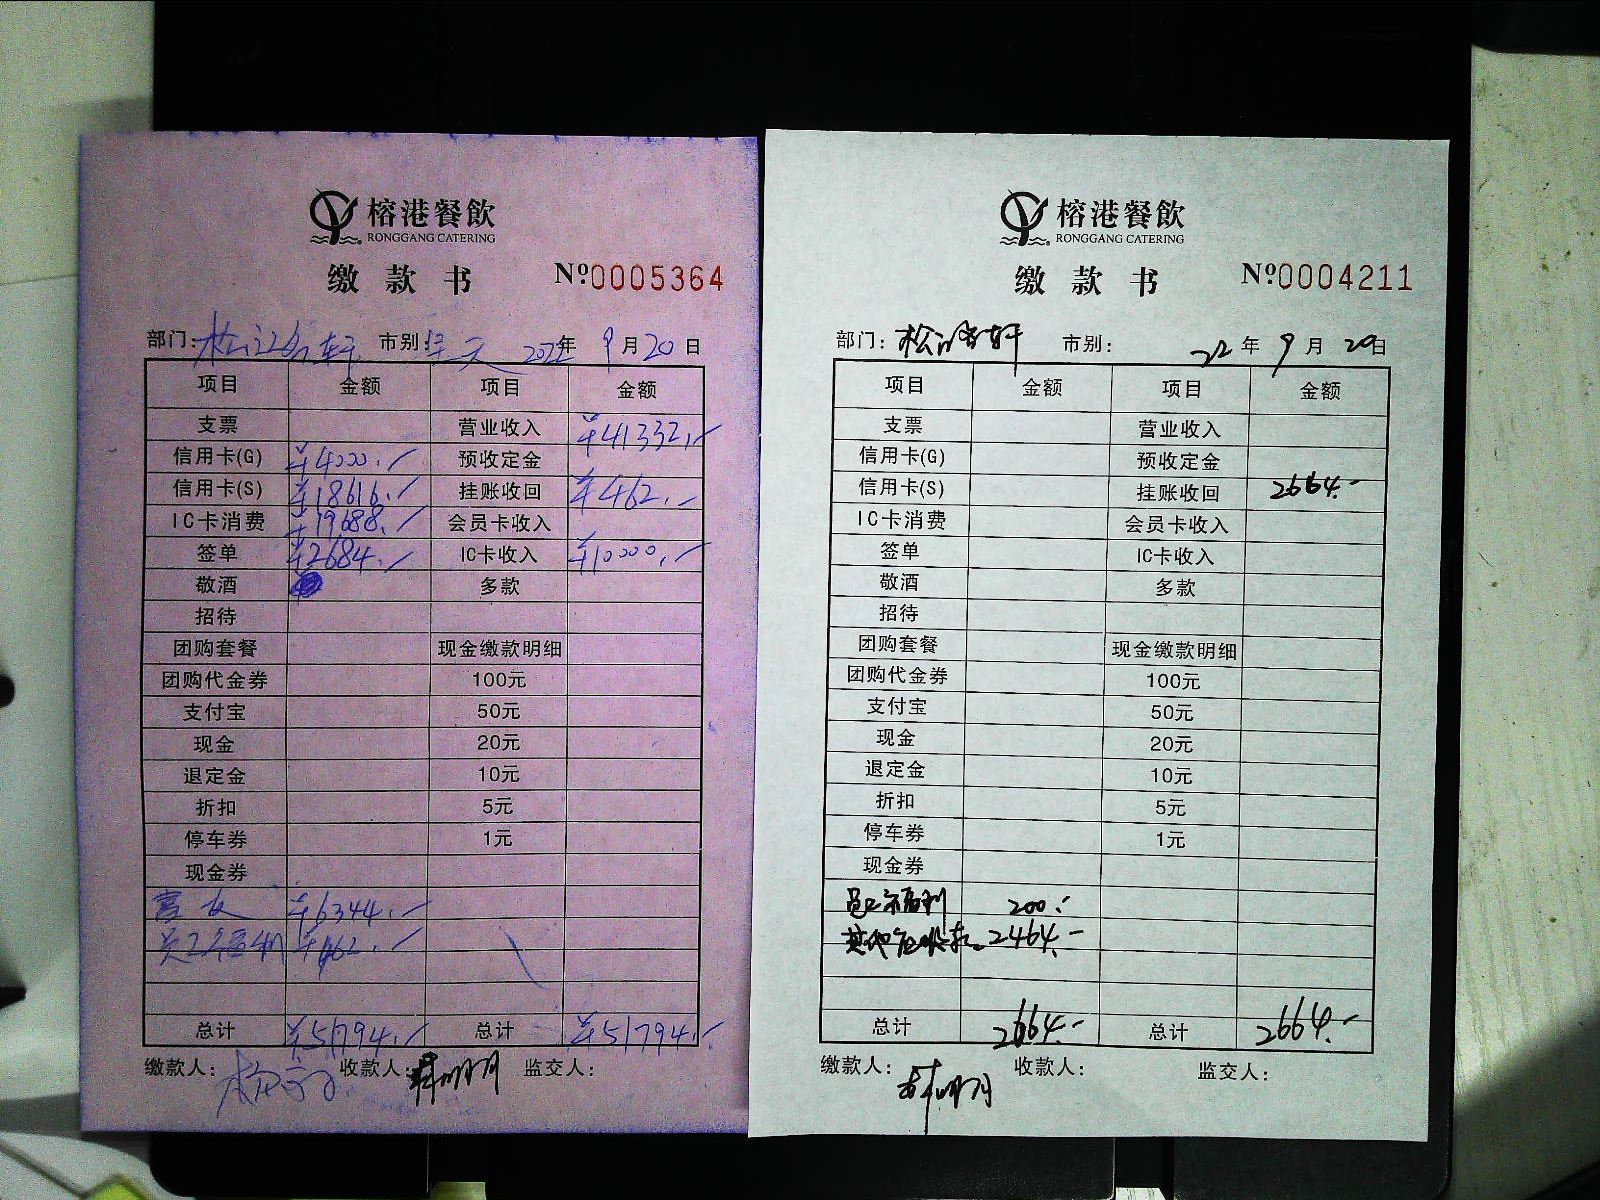 榕港餐飲
RONGGANG CATERING
缴款书 №0005364
部门: 市别: 全天 2022年 9月20日
项目 金额 项目 金额
支票 营业收入 ¥41332.-
信用卡(G) ¥4000.- 预收定金
信用卡(S) ¥18616.- 挂账收回 ¥462.-
IC卡消费 ¥19688.- 会员卡收入
签单 ¥2684.- IC卡收入 ¥10000.-
敬酒 多款
招待
团购套餐 现金缴款明细
团购代金券 100元
支付宝 50元
现金 20元
退定金 10元
折扣 5元
停车券 1元
现金券
¥6344.-
员工福利 ¥462.-
总计 ¥51794.- 总计 ¥51794.-
缴款人: 收款人: 韩明月 监交人:
榕港餐飲
RONGGANG CATERING
缴款书 №0004211
部门: 市别: 22年 9月20日
项目 金额 项目 金额
支票 营业收入
信用卡(G) 预收定金
信用卡(S) 挂账收回 2664.-
IC卡消费 会员卡收入
签单 IC卡收入
敬酒 多款
招待
团购套餐 现金缴款明细
团购代金券 100元
支付宝 50元
现金 20元
退定金 10元
折扣 5元
停车券 1元
现金券
员工福利 200.-
其他应收款 2464.-
总计 2664.- 总计 2664.-
缴款人: 韩明月 收款人: 监交人: